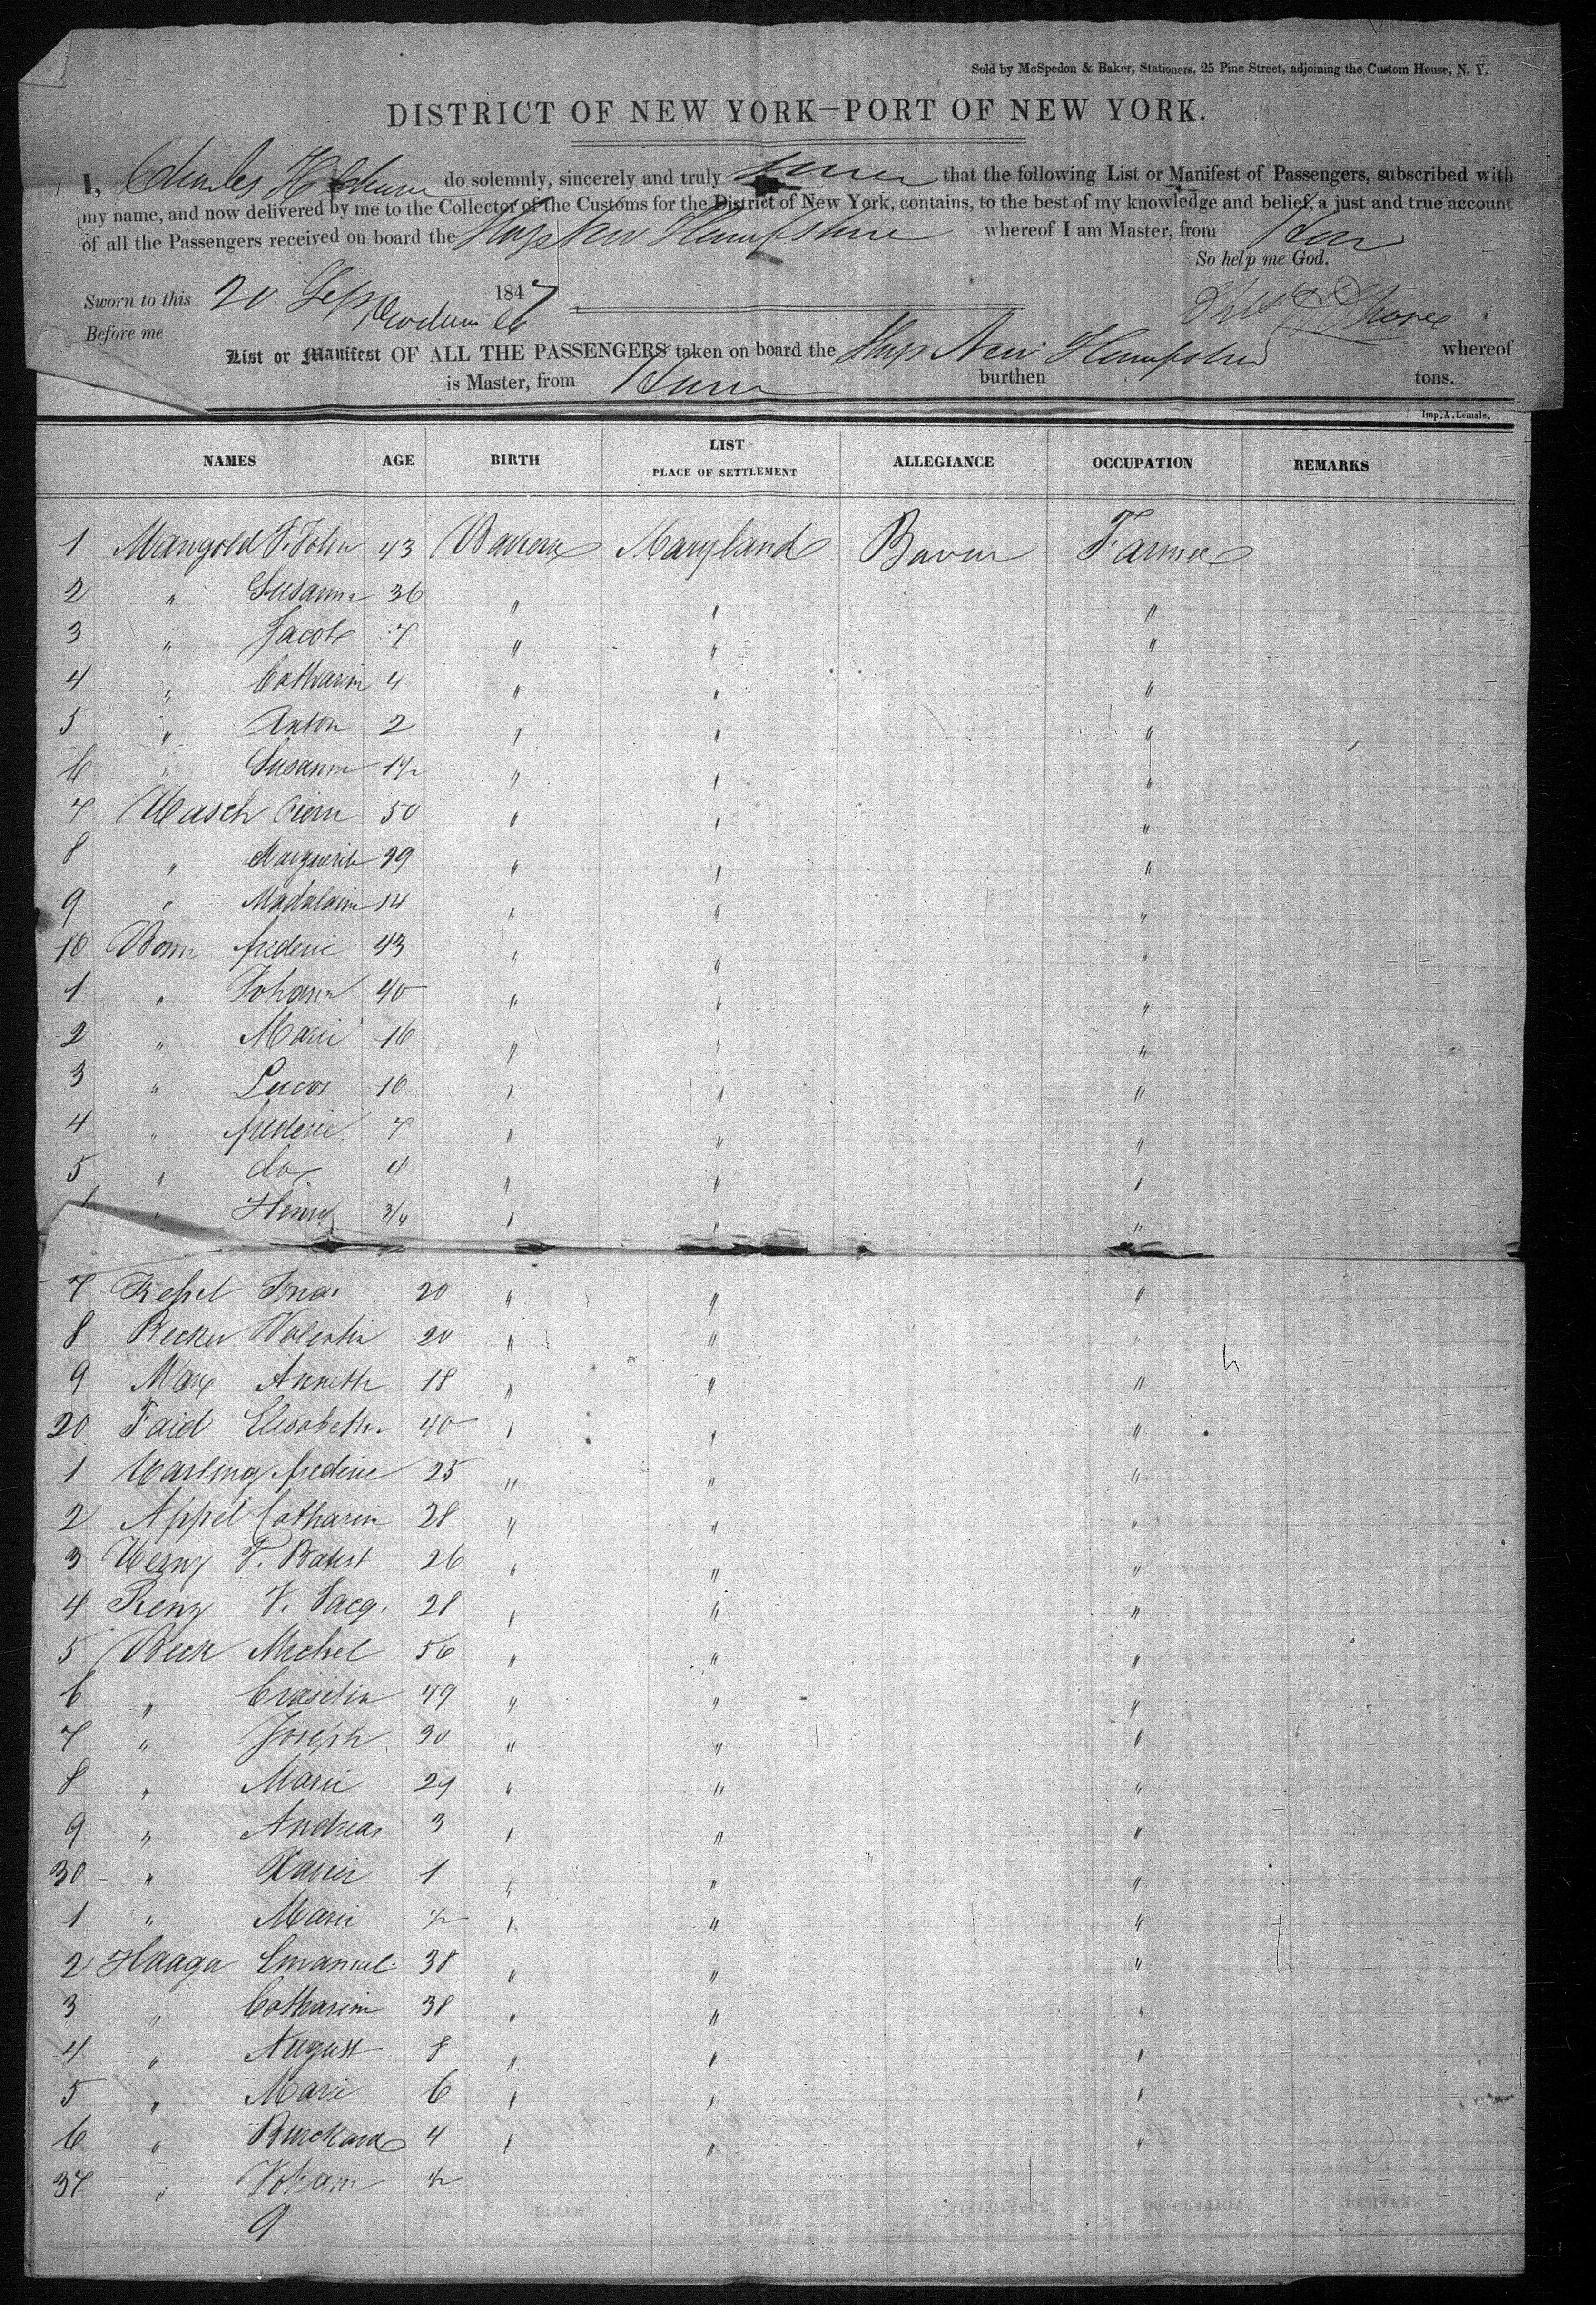 Sold by McSpedon & Baker, Stationers, 25 Pine Street, adjoining the Custom House, N. Y.
DISTRICT OF NEW YORK—PORT OF NEW YORK.
I, Charles H. do solemnly, sincerely and truly that the following List or Manifest of Passengers, subscribed with
my name, and now delivered by me to the Collector of the Customs for the District of New York, contains, to the best of my knowledge and belief, a just and true account
of all the Passengers received on board the Ship New Hampshire whereof I am Master, from
So help me God.
Sworn to this 20 Sep 1847
Before me
List or Manifest OF ALL THE PASSENGERS taken on board the Ship New Hampshire whereof
is Master, from burthen tons.
Imp. A. Lemale.
NAMES AGE BIRTH LIST PLACE OF SETTLEMENT ALLEGIANCE OCCUPATION REMARKS
1 Mangold F. John 43 Bavern Maryland Baver Farmer
2 " Susanna 36 " " "
3 " Jacob 7 " " "
4 " Catharin 4 " " "
5 " Anton 2 " " "
6 " Susann 1/2 " " "
7 Masch 50 " " "
8 " Marguerit 29 " " "
9 " Madalaine 14 " " "
10 Born frederic 43 " " "
1 " Johann 40 " " "
2 " Marie 16 " " "
3 " Lucas 10 " " "
4 " frederic 7 " " "
5 " do 4 " " "
" Henry 3/4 " " "
7 20 " " "
8 Becker Valentin 20 " " "
9 Marx Annette 18 " " "
20 Faid Elisabeth 40 " " "
1 frederic 25 " " "
2 Appel Catharin 28 " " "
3 F. Batist 26 " " "
4 Renz F. Jacq. 28 " " "
5 Beck Michel 56 " " "
6 " 49 " " "
7 " Joseph 30 " " "
8 " Marie 29 " " "
9 " Andreas 3 " " "
30 " Xavier 1 " " "
1 " Marie 1/2 " " "
2 Haaga Emanuel 38 " " "
3 " Catharin 38 " " "
4 " August 8 " " "
5 " Marie 6 " " "
6 " Burckard 4 " " "
37 " Johann 1/2
9